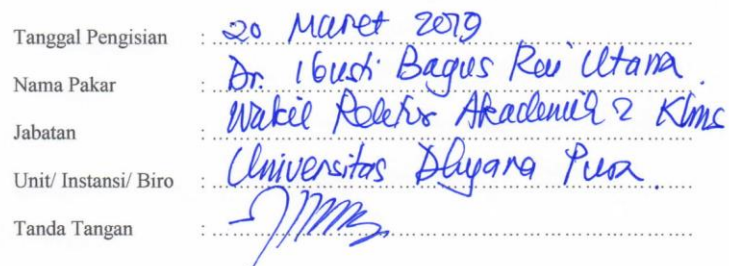 Tanggal Pengisian : 20 Maret 2019
Nama Pakar : Dr. I Gusti Bagus Rai Utama.
Jabatan : Wakil Rektor Akademik 2 Kmhs
Unit/ Instansi/ Biro : Universitas Dhyana Pura.
Tanda Tangan :